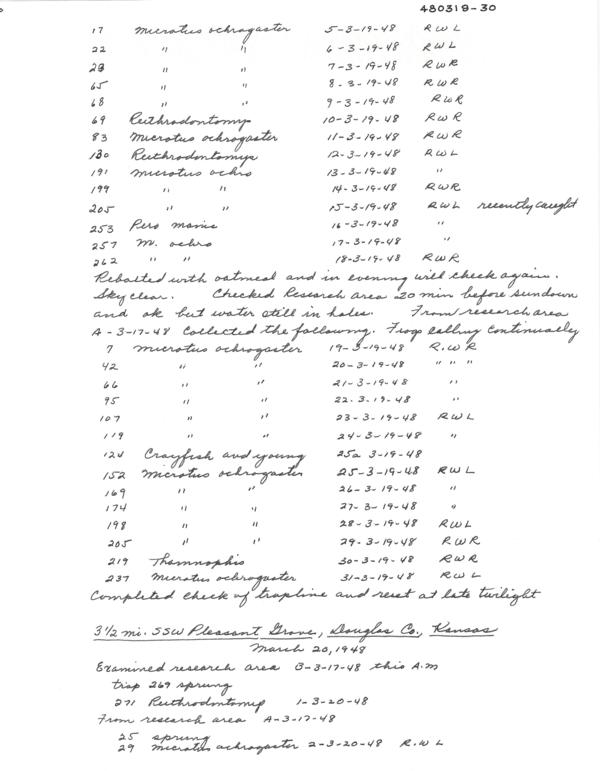 480319-30
17 Microtus ochrogaster 5-3-19-48 RWL
22 " " 6-3-19-48 RWL
23 " " 7-3-19-48 RWR
65 " " 8-3-19-48 RWR
68 " " 9-3-19-48 RWR
69 Reithrodontomys 10-3-19-48 RWR
83 Microtus ochrogaster 11-3-19-48 RWR
130 Reithrodontomys 12-3-19-48 RWL
191 Microtus ochro 13-3-19-48 "
199 " " 14-3-19-48 RWR
205 " " 15-3-19-48 RWL recently caught
253 Pero manic 16-3-19-48 "
257 M. ochro 17-3-19-48 "
262 " " 18-3-19-48 RWR
Rebaited with oatmeal and in evening will check again.
Sky clear. Checked Research area 20 min before sundown
and ok but water still in holes. From research area
A-3-17-48 Collected the following. Frogs calling continually
7 Microtus ochrogaster 19-3-19-48 R.W.R
42 " " 20-3-19-48 " " "
66 " " 21-3-19-48 "
95 " " 22-3-19-48 "
107 " " 23-3-19-48 RWL
119 " " 24-3-19-48 "
124 Crayfish and young 25a 3-19-48
152 Microtus ochrogaster 25-3-19-48 RWL
169 " " 26-3-19-48 "
174 " " 27-3-19-48 "
198 " " 28-3-19-48 RWL
205 " " 29-3-19-48 RWR
219 Thamnophis 30-3-19-48 RWR
237 Microtus ochrogaster 31-3-19-48 RWL
Completed check of trapline and reset at late twilight
3 1/2 mi. SSW Pleasant Grove, Douglas Co., Kansas
March 20, 1948
Examined research area B-3-17-48 this A.M
trap 269 sprung
271 Reithrodontomys 1-3-20-48
From research area A-3-17-48
25 sprung
29 Microtus ochrogaster 2-3-20-48 R.W.L